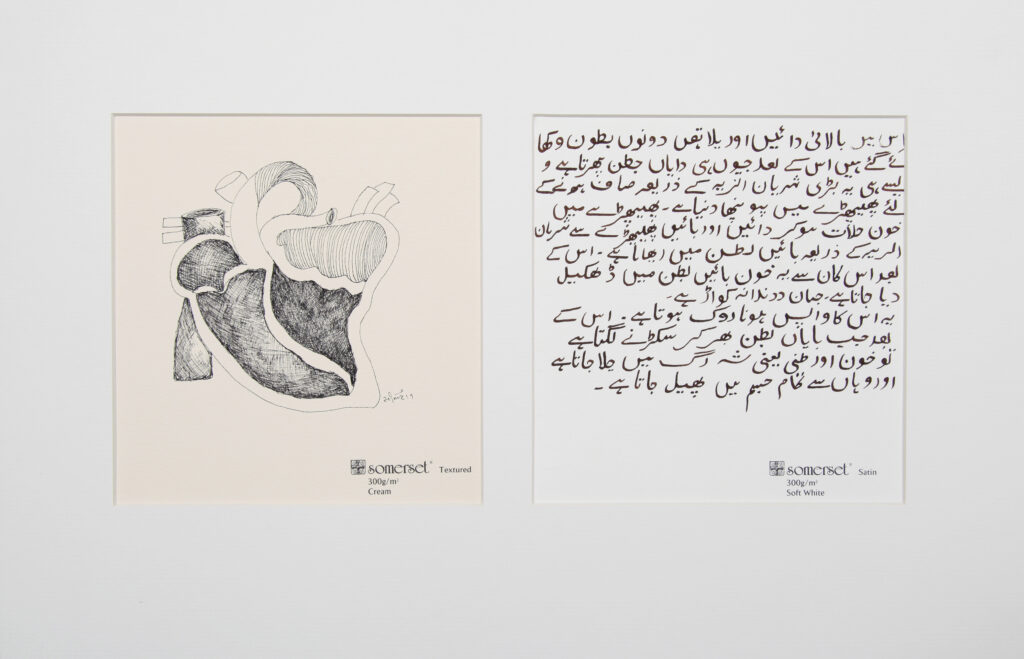 somerset® Textured
300g/m²
Cream
اس میں بالائی دائیں اور بلا یقیں دونوں بطون دکھا
ئے گئے ہیں اس کے بعد جیوں ہی دایاں بطن بھرتا ہے و
یسے ہی یہ بڑی شریان الریہ کے ذریعہ صاف ہونے کے
لئے پھیپھڑے میں پہونچا دیتا ہے۔ پھیپھڑے میں
خون صاف ہو کر دائیں اور بائیں پھیپھڑے سے شریان
الریہ کے ذریعہ بائیں بطن میں آ جاتا ہے۔ اس کے
بعد اس کان سے یہ خون بائیں بطن میں ڈھکیل
دیا جاتا ہے۔ جہاں دو دندانہ کواڑ ہے۔
یہ اس کا واپس ہونا روک ہوتا ہے۔ اس کے
بعد جب بایاں بطن بھر کر سکڑنے لگتا ہے
تو خون اورطی یعنی شہ رگ میں چلا جاتا ہے
اور وہاں سے تمام جسم میں پھیل جاتا ہے۔
somerset® Satin
300g/m²
Soft White